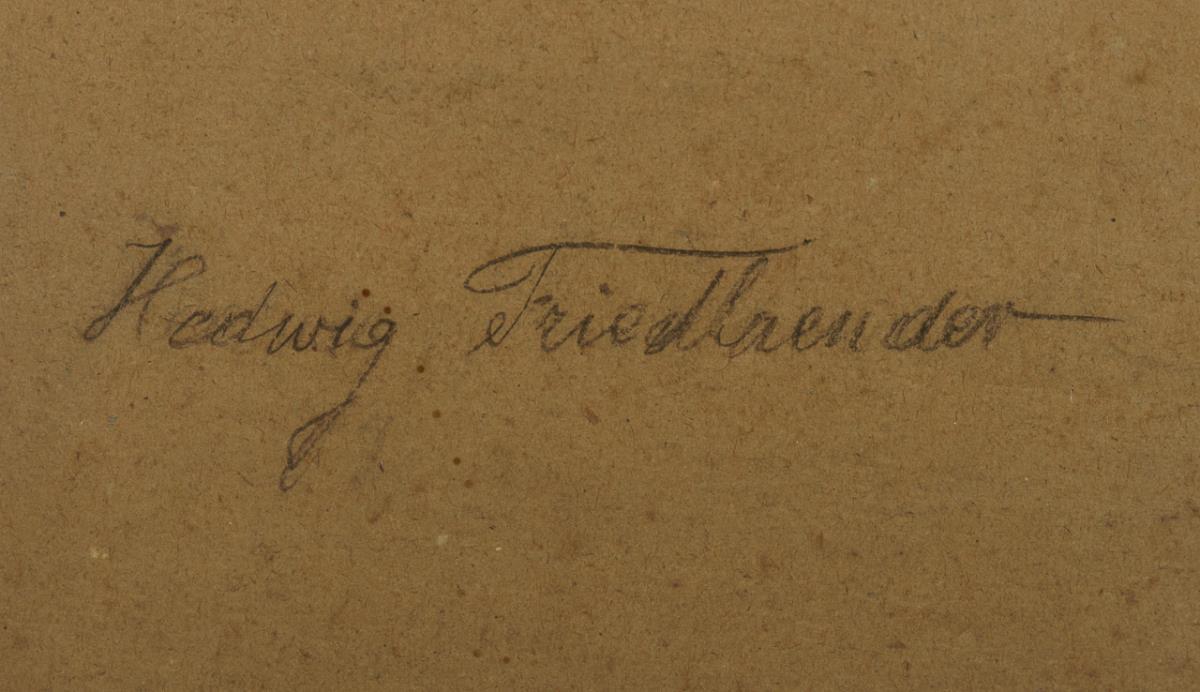 Hedwig Friedlaender